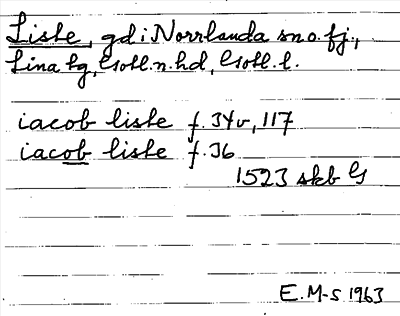 Liske, gd i Norrlanda sn o. fj.,
Lina tg, Gotl. n. hd, Gotl. l.
iacob liske f. 34v, 117
iacob liske f. 36
1523 skb G
E. M-s 1963